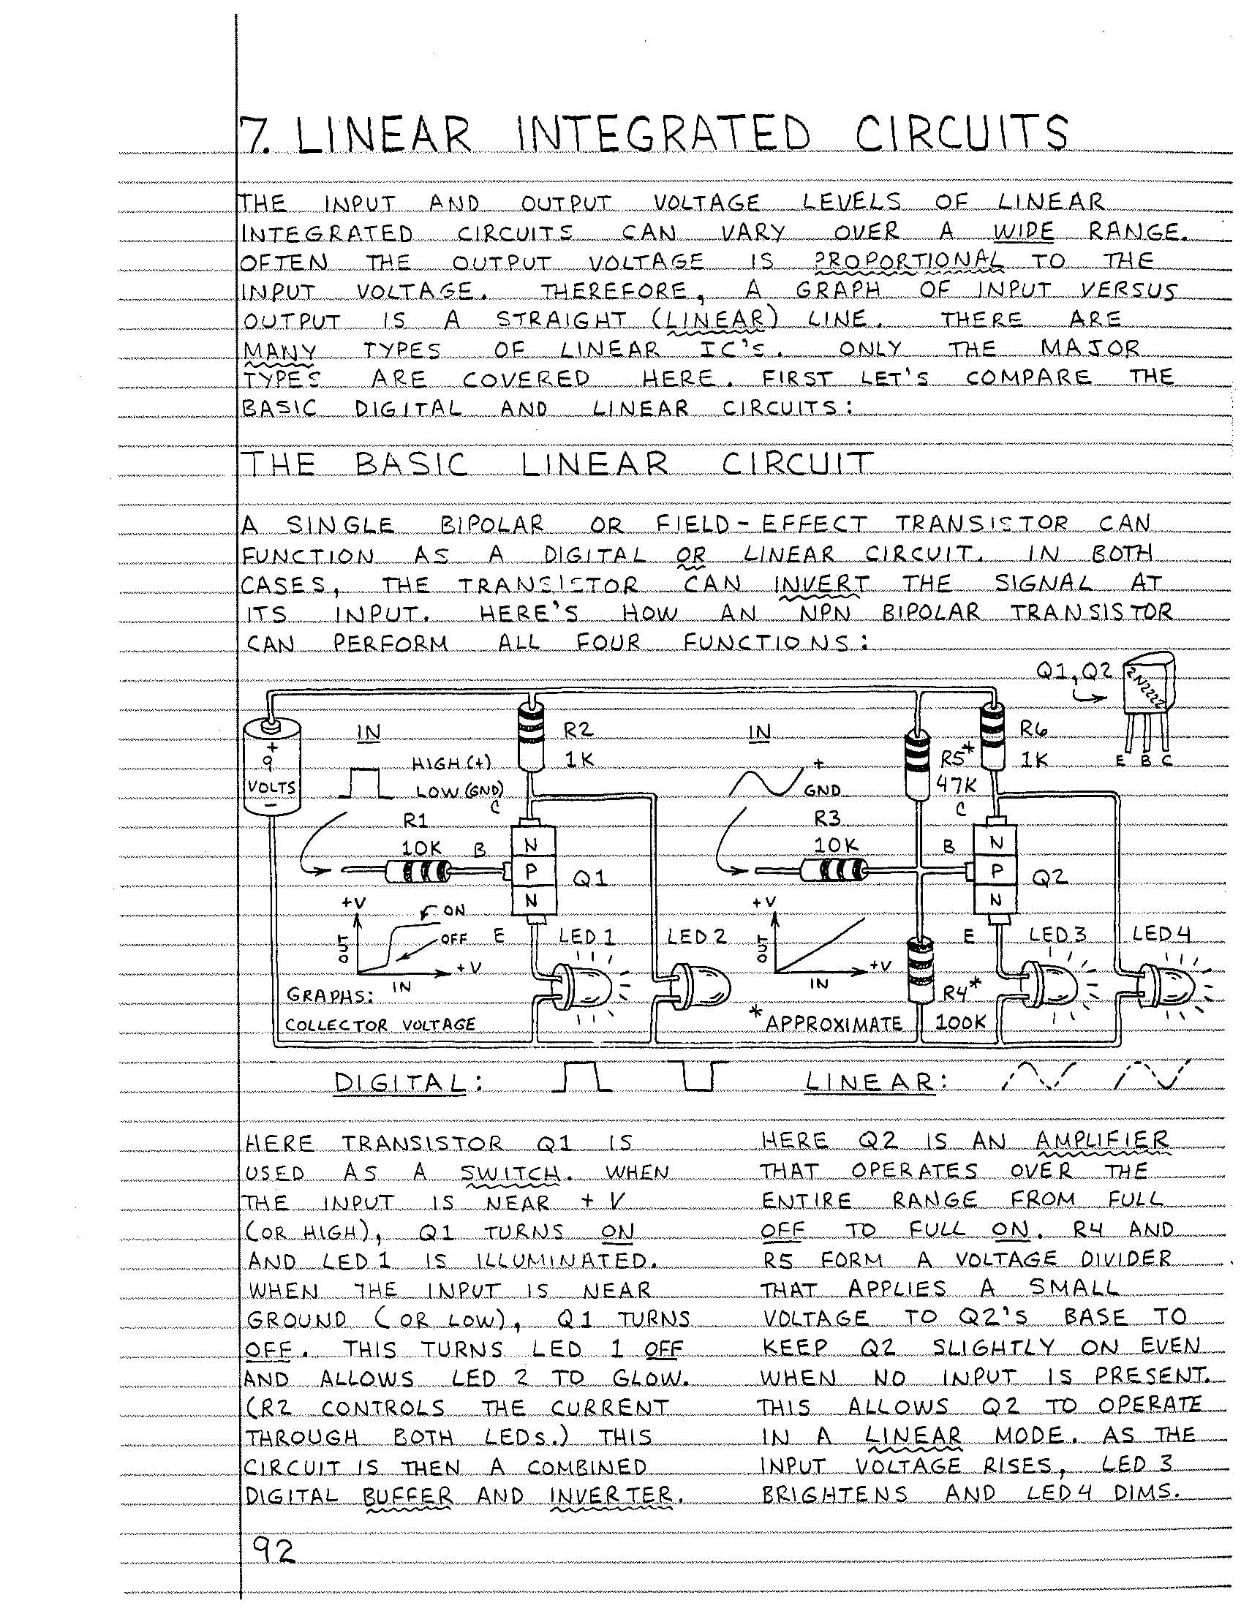 7. LINEAR INTEGRATED CIRCUITS
THE INPUT AND OUTPUT VOLTAGE LEVELS OF LINEAR
INTEGRATED CIRCUITS CAN VARY OVER A WIDE RANGE.
OFTEN THE OUTPUT VOLTAGE IS PROPORTIONAL TO THE
INPUT VOLTAGE. THEREFORE, A GRAPH OF INPUT VERSUS
OUTPUT IS A STRAIGHT (LINEAR) LINE. THERE ARE
MANY TYPES OF LINEAR IC'S. ONLY THE MAJOR
TYPES ARE COVERED HERE. FIRST LET'S COMPARE THE
BASIC DIGITAL AND LINEAR CIRCUITS:
THE BASIC LINEAR CIRCUIT
A SINGLE BIPOLAR OR FIELD-EFFECT TRANSISTOR CAN
FUNCTION AS A DIGITAL OR LINEAR CIRCUIT. IN BOTH
CASES, THE TRANSISTOR CAN INVERT THE SIGNAL AT
ITS INPUT. HERE'S HOW AN NPN BIPOLAR TRANSISTOR
CAN PERFORM ALL FOUR FUNCTIONS:
Q1, Q2
2N2222
E B C
+
9
VOLTS
-
IN
HIGH (+)
LOW (GND)
R2
1K
C
R1
10K
B
N
P
N
Q1
E
+V
OUT
ON
OFF
+V
IN
GRAPHS:
COLLECTOR VOLTAGE
LED 1
LED 2
IN
+
GND
R3
10K
R5*
47K
R6
1K
C
B
N
P
N
Q2
E
+V
OUT
+V
IN
R4*
100K
*APPROXIMATE
LED 3
LED 4
DIGITAL:
HERE TRANSISTOR Q1 IS
USED AS A SWITCH. WHEN
THE INPUT IS NEAR +V
(OR HIGH), Q1 TURNS ON
AND LED 1 IS ILLUMINATED.
WHEN THE INPUT IS NEAR
GROUND (OR LOW), Q1 TURNS
OFF. THIS TURNS LED 1 OFF
AND ALLOWS LED 2 TO GLOW.
(R2 CONTROLS THE CURRENT
THROUGH BOTH LEDS.) THIS
CIRCUIT IS THEN A COMBINED
DIGITAL BUFFER AND INVERTER.
LINEAR:
HERE Q2 IS AN AMPLIFIER
THAT OPERATES OVER THE
ENTIRE RANGE FROM FULL
OFF TO FULL ON. R4 AND
R5 FORM A VOLTAGE DIVIDER
THAT APPLIES A SMALL
VOLTAGE TO Q2'S BASE TO
KEEP Q2 SLIGHTLY ON EVEN
WHEN NO INPUT IS PRESENT.
THIS ALLOWS Q2 TO OPERATE
IN A LINEAR MODE. AS THE
INPUT VOLTAGE RISES, LED 3
BRIGHTENS AND LED 4 DIMS.
92